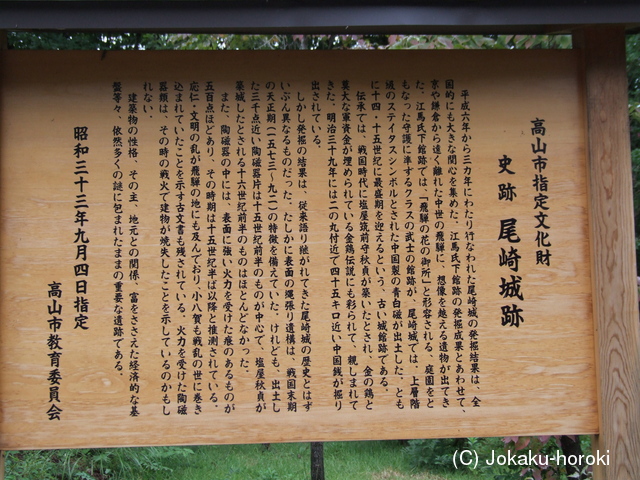 高山市指定文化財
史跡 尾崎城跡
平成六年から三カ年にわたり行なわれた尾崎城の発掘結果は、全
国的にも大きな関心を集めた。江馬氏下館跡の発掘成果とあわせて、
京や鎌倉から遠く離れた中世の飛騨に、想像を越える遺物が出てき
た。江馬氏下館跡では、「飛騨の花の御所」と形容される、庭園をと
もなった守護に準ずるクラスの武士の館跡が、尾崎城では、上層階
級のステイタスシンボルとされた中国製の青白磁が出土した。とも
に十四・十五世紀に最盛期を迎えるという、古い城館跡である。
伝承では、戦国時代に塩屋筑前守秋貞が築いたとされ、金の鶏と
莫大な軍資金が埋められている金鶏伝説にも彩られて、親しまれて
きた。明治三十九年には二の丸付近で四十五キロ近い中国銭が掘り
出されている。
しかし発掘の結果は、従来語り継がれてきた尾崎城の歴史とはず
いぶん異なるものだった。たしかに表面の縄張り遺構は、戦国末期
の天正期(一五七三～九二)の特徴を備えていた。けれども、出土し
た三千点近い陶磁器片は十五世紀前半のものが中心で、塩屋秋貞が
築城したとされる十六世紀前半のものはほとんどなかった。
また、陶磁器の中には、表面に強い火力を受けた痕のあるものが
五百点ほどあり、その時期は十五世紀半ば以降と推測されている。
応仁・文明の乱が飛騨の地にも及んでおり、小八賀も戦乱の世に巻き
込まれていたことを示す古文書も残されている。火力を受けた陶磁
器類は、その時の戦火で建物が焼失したことを示しているのかもし
れない。
建築物の性格、その主、地元との関係、富をささえた経済的な基
盤等々、依然多くの謎に包まれたままの重要な遺跡である。
昭和三十三年九月四日指定
高山市教育委員会
(C) Jokaku-horoki